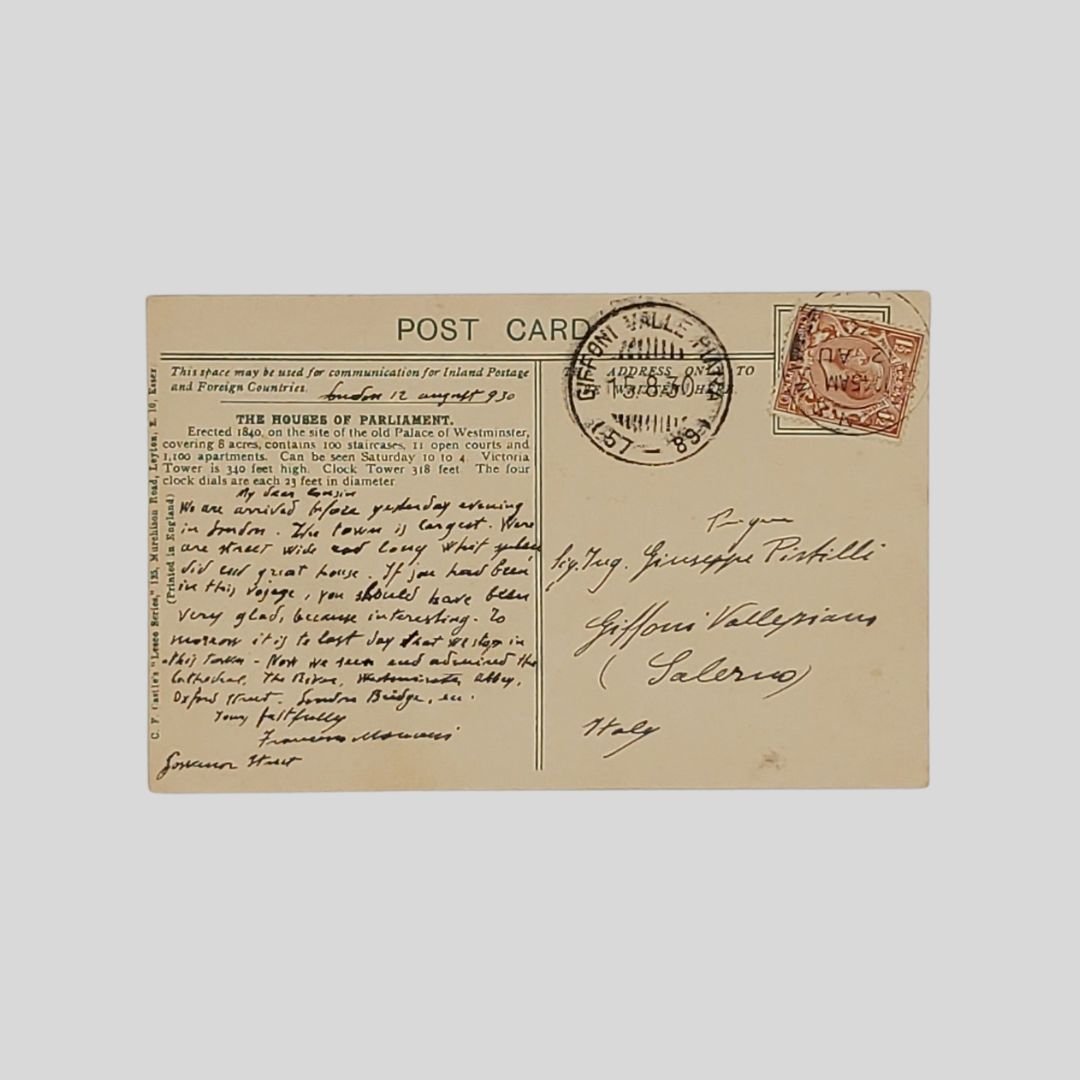 POST CARD
This space may be used for communication for Inland Postage
and Foreign Countries.
London 12 august 930
THE HOUSES OF PARLIAMENT.
Erected 1840, on the site of the old Palace of Westminster,
covering 8 acres, contains 100 staircases, 11 open courts and
1,100 apartments. Can be seen Saturday 10 to 4. Victoria
Tower is 340 feet high. Clock Tower 318 feet. The four
clock dials are each 23 feet in diameter
My dear Cousin
We are arrived before yesterday evening
in London. The town is largest. Were
are street wide and long whit
did and great house. If you had been
in this voyage, you should have been
very glad, because interesting. To
morrow it is te last day that we stop in
this town - Now we seen and admired the
Cathedral, The River, Westminster Abbey,
Oxford Street. London Bridge, ecc.
Your faitfully
Francesco
Street
C. F. Castle's "Lesco Series," 125, Murchison Road, Leyton, E. 10, Essex
(Printed in England)
GIFFONI VALLE PIANA
15.8.30
(57 — 89)
ADDRESS ONLY TO
BE WRITTEN HERE.
45AM
2 AU
Sig. Ing. Giuseppe Pistilli
Giffoni Vallepiana
(Salerno)
Italy